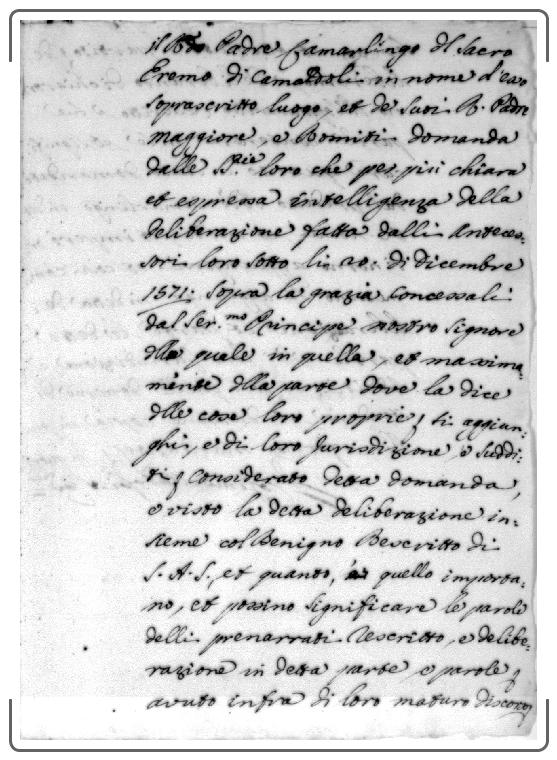 il Rdo Padre Camarlingo dl Sacro
Eremo di Camaldoli in nome d'esso
soprascritto luogo, et de suoi R. Padre
Maggiore, e Romiti domanda
dalle S.rie loro che per più chiara
et espressa intelligenza della
deliberazione fatta dalli Anteces-
sori loro sotto li 20. di dicembre
1571: sopra la grazia concessali
dal Ser.mo Principe nostro Signore
dlla quale in quella, et massima-
mente dlla parte dove la dice
dlle cose loro proprie, si aggiun-
ghi, e di loro Jurisdizione, e suddi-
ti, considerato detta domanda,
e visto la detta deliberazione in-
sieme col Benigno Rescritto di
S. A. S., et quanto, quello importa-
no, et possino significare le parole
delli prenarrati Rescritto, e delibe-
razione in detta parte, e parole
avuto infra di loro maturo discorso